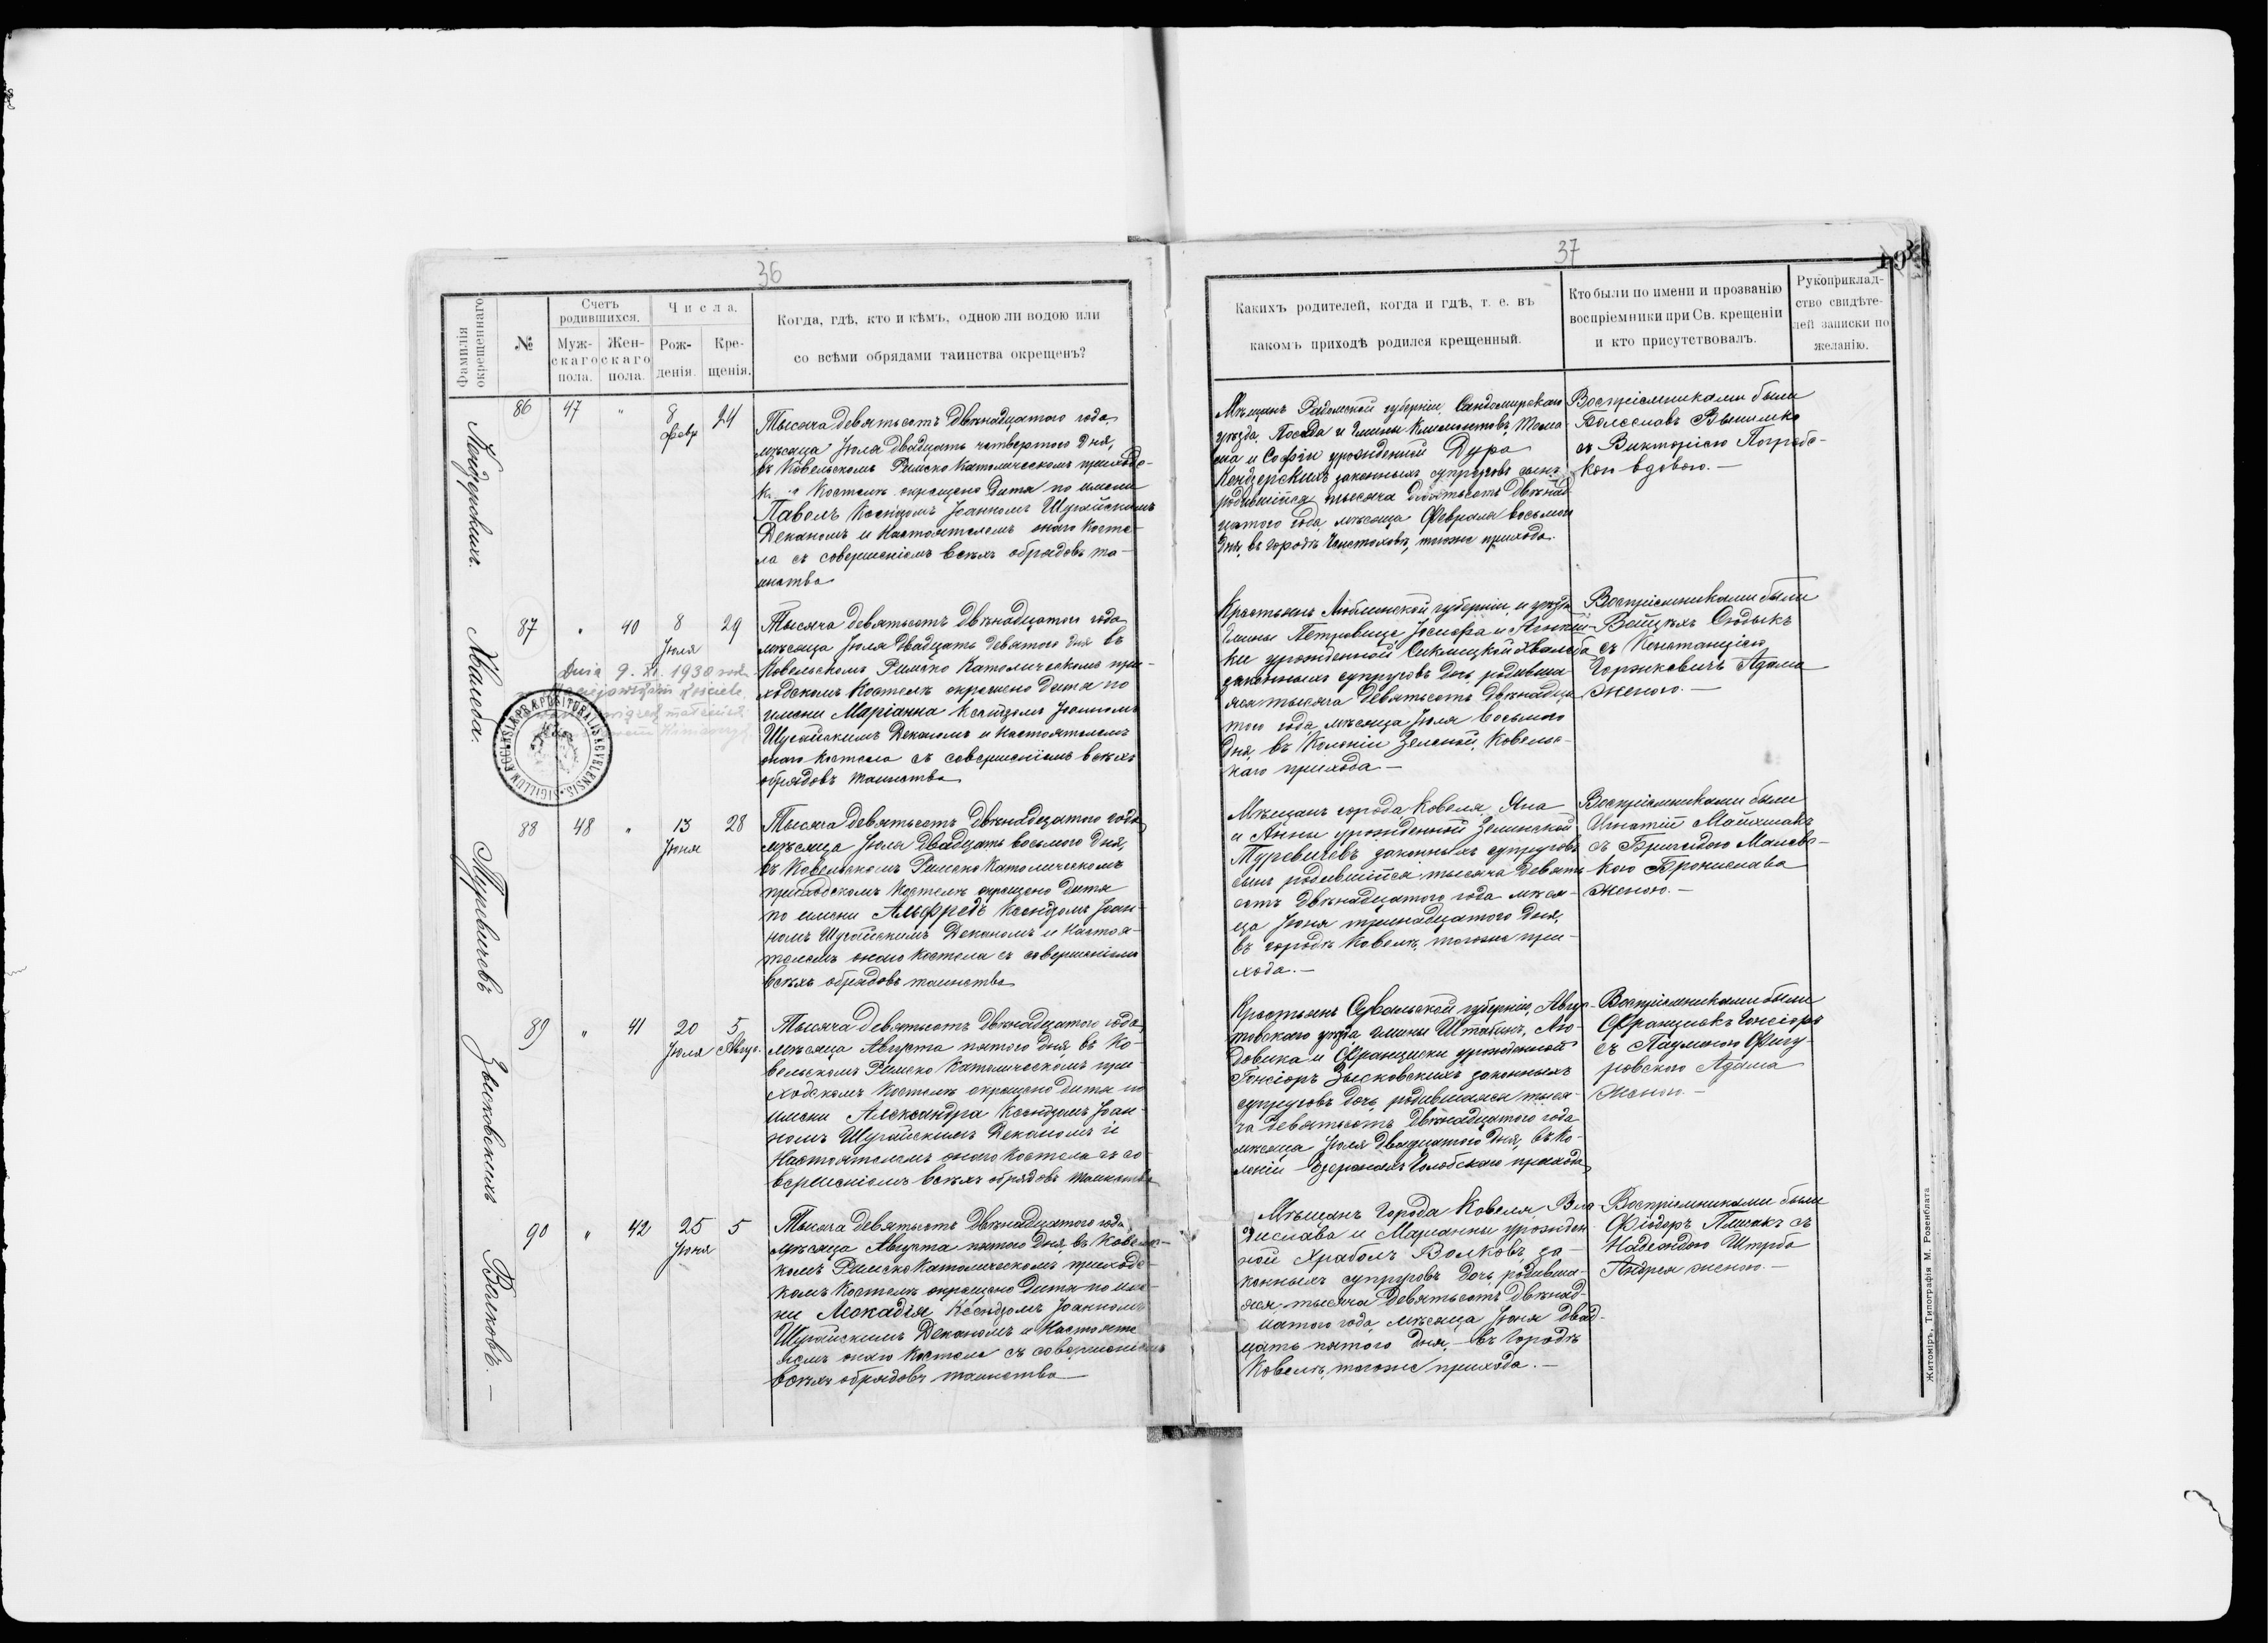 36
Фамилія окрещеннаго.
№
Счетъ родившихся.
Муж-скаго пола.
Жен-скаго пола.
Числа.
Рож-денія.
Кре-щенія.
Когда, гдѣ, кто и кѣмъ, одною ли водою или
со всѣми обрядами таинства окрещенъ?
86
47
"
8
Февр
24
Тысяча девятьсотъ двѣнадцатого года,
мѣсяца Іюля двадцать четвертого дня,
въ Ковельскомъ Римско Католическомъ приходс-
костелѣ окрещено дитя по имени
Павелъ Ксендзомъ Іоанномъ Шугайскимъ
Деканомъ и Настоятелемъ онаго Косте-
ла съ совершеніемъ всѣхъ обрядовъ та-
инства
Хвалеба.
87
"
40
8
Іюля
29
Тысяча девятьсотъ двѣнадцатого года
мѣсяца Іюля двадцать девятого дня въ
Ковельскомъ Римско Католическомъ при-
ходскомъ Костелѣ окрещено дитя по
имени Маріанна Ксендзомъ Іоанномъ
Шугайскимъ Деканомъ и Настоятелемъ
онаго Костела съ совершеніемъ всѣхъ
обрядовъ таинства
Dnia 9. XI. 1930 roku
SIGILLUM ECCLESIÆ PRÆPOSITURALIS KOVELENSIS
Туревичевъ
88
48
"
13
Іюня
28
Тысяча девятьсотъ двѣнадцатого года
мѣсяца Іюля двадцать восьмого дня,
въ Ковельскомъ Римско Католическомъ
приходскомъ Костелѣ окрещено дитя
по имени Альфредъ Ксендзомъ Іоан-
номъ Шугайскимъ Деканомъ и Настоя-
телемъ онаго Костела съ совершеніемъ
всѣхъ обрядовъ таинства
Зысковскихъ
89
"
41
20
Іюля
5
Авгус.
Тысяча девятьсотъ двѣнадцатого года,
мѣсяца Августа пятого дня въ Ко-
вельскомъ Римско Католическомъ при-
ходскомъ Костелѣ окрещено дитя по
имени Александра Ксендзомъ Іоан-
номъ Шугайскимъ Деканомъ и
Настоятелемъ онаго Костела съ со-
вершеніемъ всѣхъ обрядовъ таинства
Волковъ. —
90
"
42
25
Іюня
5
Тысяча девятьсотъ двѣнадцатого года,
мѣсяца Августа пятого дня, въ Ковельс-
комъ Римско Католическомъ приходс-
комъ Костелѣ окрещено дитя по име-
ни Леокадія Ксендзомъ Іоанномъ
Шугайскимъ Деканомъ и Настояте
лемъ онаго Костела съ совершеніемъ
всѣхъ обрядовъ таинства
37
Какихъ родителей, когда и гдѣ, т. е. въ
какомъ приходѣ родился крещенный.
Кто были по имени и прозванію
воспріемники при Св. крещеніи
и кто присутствовалъ.
Рукоприклад-
ство свидѣте-
лей записки по
желанію.
Мѣщанъ Радомской губерніи, Сандомирскаго
уѣзда, Посада и Гмины Климонтовъ, Тома
ша и Софіи урожденной Дура
законныхъ супруговъ сынъ
родившійся тысяча девятьсотъ двѣнад
цатого года мѣсяца Февраля восьмого
дня, въ городѣ Ченстоховѣ, тогоже прихода.
Воспріемниками были
Болеславъ
съ Викторіею
кою вдовою. —
Крестьянъ Люблинской губерніи и уѣзда
Гмины Петровице, Іосифа и Агнѣш-
ки урожденной Хвалеба
законныхъ супруговъ дочь, родивша
яся тысяча девятьсотъ двѣнадца
того года, мѣсяца Іюля восьмого
дня, въ Колоніи Зеленой, Ковельс-
каго прихода —
Воспріемниками были
Войцѣхъ
съ Констанціею
Адама
женою. —
Мѣщанъ города Ковеля, Яна
и Анны урожденной Зелинской
Туревичевъ законныхъ супруговъ
сынъ родившійся тысяча девять-
сотъ двѣнадцатого года мѣся-
ца Іюня тринадцатого дня,
въ городѣ Ковелѣ, тогоже при-
хода. —
Воспріемниками были
Игнатій
съ Бригидою Малевс-
кою Бронислава
женою. —
Крестьянъ Сувальской губерніи, Авгус-
товскаго уѣзда гмины Штабинъ, Лю-
довика и Францишки урожденной
Гонсіоръ Зысковскихъ законныхъ
супруговъ дочь, родившаяся тыся-
ча девятьсотъ двѣнадцатого года
мѣсяца Іюля двадцатого дня, въ Ко-
лоніи Голобскаго прихода,
Воспріемниками были
Францишкъ Гонсіоръ
съ Паулиною Фигу-
ровскою Адама
женою. —
Мѣщанъ города Ковеля, Вла
дислава и Маріанны урожден-
ной Волковъ, за-
конныхъ супруговъ дочь, родивша-
яся, тысяча девятьсотъ двѣнад-
цатого года, мѣсяца Іюня двад-
цать пятого дня, — въ городѣ
Ковелѣ, тогоже прихода. —
Воспріемниками были
Фіодоръ съ
Надеждою Штрба
Андрея женою. —
Житоміръ, Типографія М. Розенблата